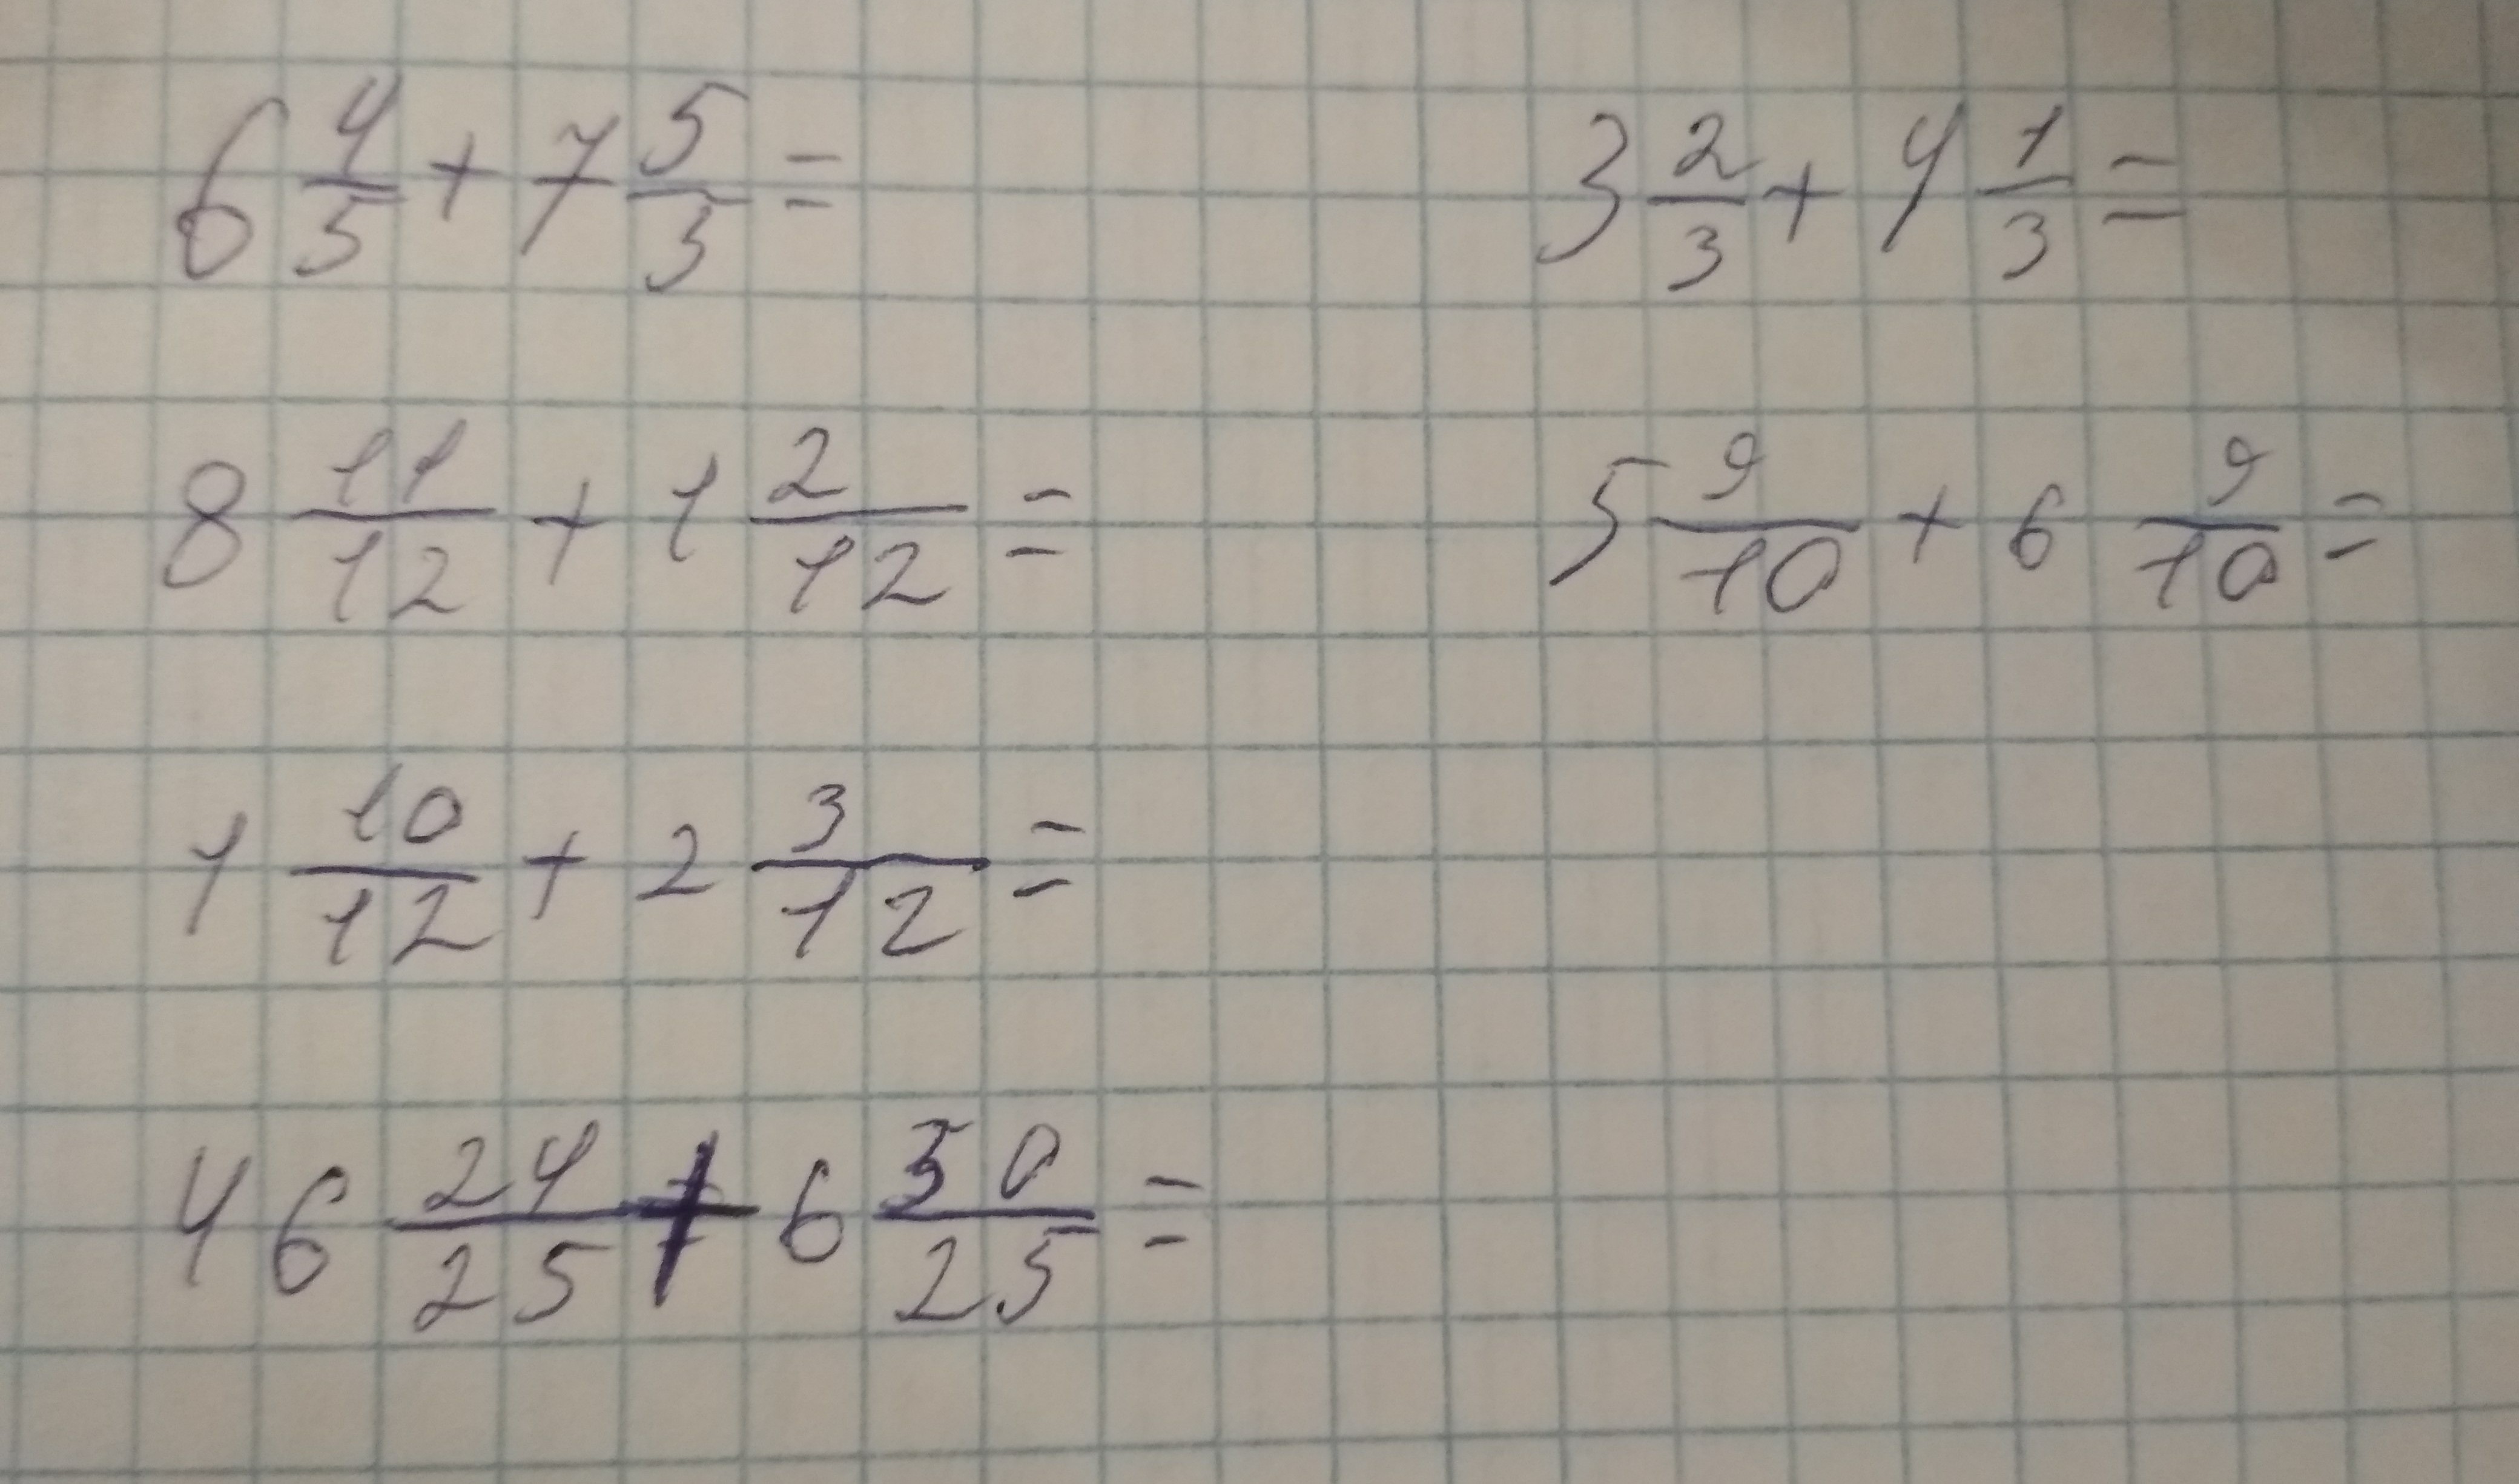 6 4/5 + 7 5/3 = 3 2/3 + 4 1/3 =
8 11/12 + 1 2/12 = 5 9/10 + 6 9/10 =
1 10/12 + 2 3/12 =
46 24/25 + 6 50/25 =